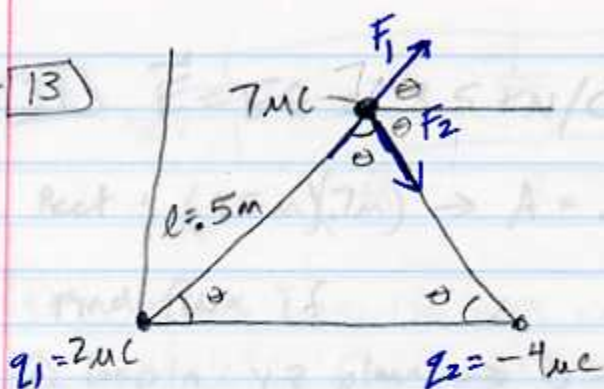 13
F₁
7μC
θ
θ F₂
θ
l=.5m
θ
θ
q₁=2μC
q₂=-4μC